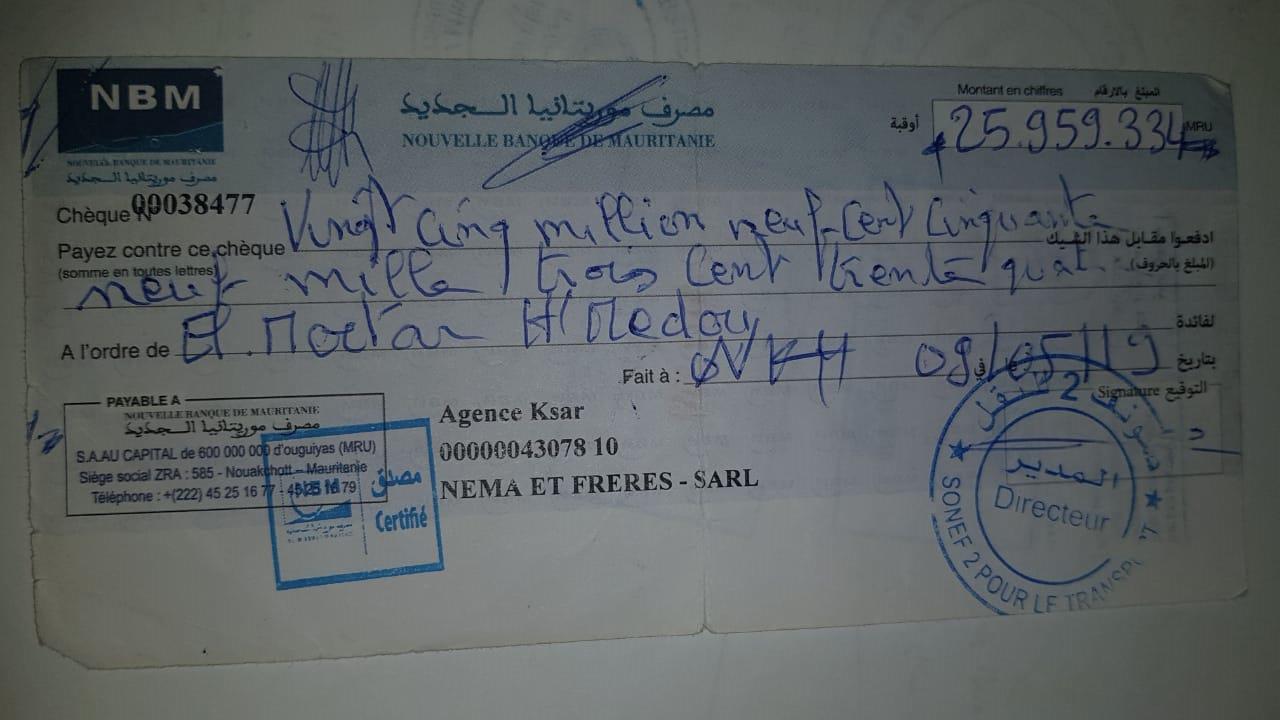 NBM
NOUVELLE BANQUE DE MAURITANIE
مصرف موريتانيا الجديد
مصرف موريتانيا الجديد
NOUVELLE BANQUE DE MAURITANIE
Montant en chiffres المبلغ بالأرقام
أوقية 25.959.334 MRU
Chèque N° 00038477
Payez contre ce chèque Vingt cinq million neuf-cent cinquante ادفعوا مقابل هذا الشيك
(somme en toutes lettres) neuf mille trois cent trente quat (المبلغ بالحروف)
A l'ordre de El. Moctar H'Medou لفائدة
Fait à : NKTT 09/05/19 في بتاريخ
Signature التوقيع
PAYABLE A
NOUVELLE BANQUE DE MAURITANIE
مصرف موريتانيا الجديد
S.A.AU CAPITAL de 600 000 000 d'ouguiyas (MRU)
Siège social ZRA : 585 - Nouakchott – Mauritanie
Téléphone : +(222) 45 25 16 77 - 45 25 16 79
Agence Ksar
00000043078 10
NEMA ET FRERES - SARL
NBM
مصدق
Certifié
سونف 2 للنقل
المدير
Directeur
SONEF 2 POUR LE TRANSP